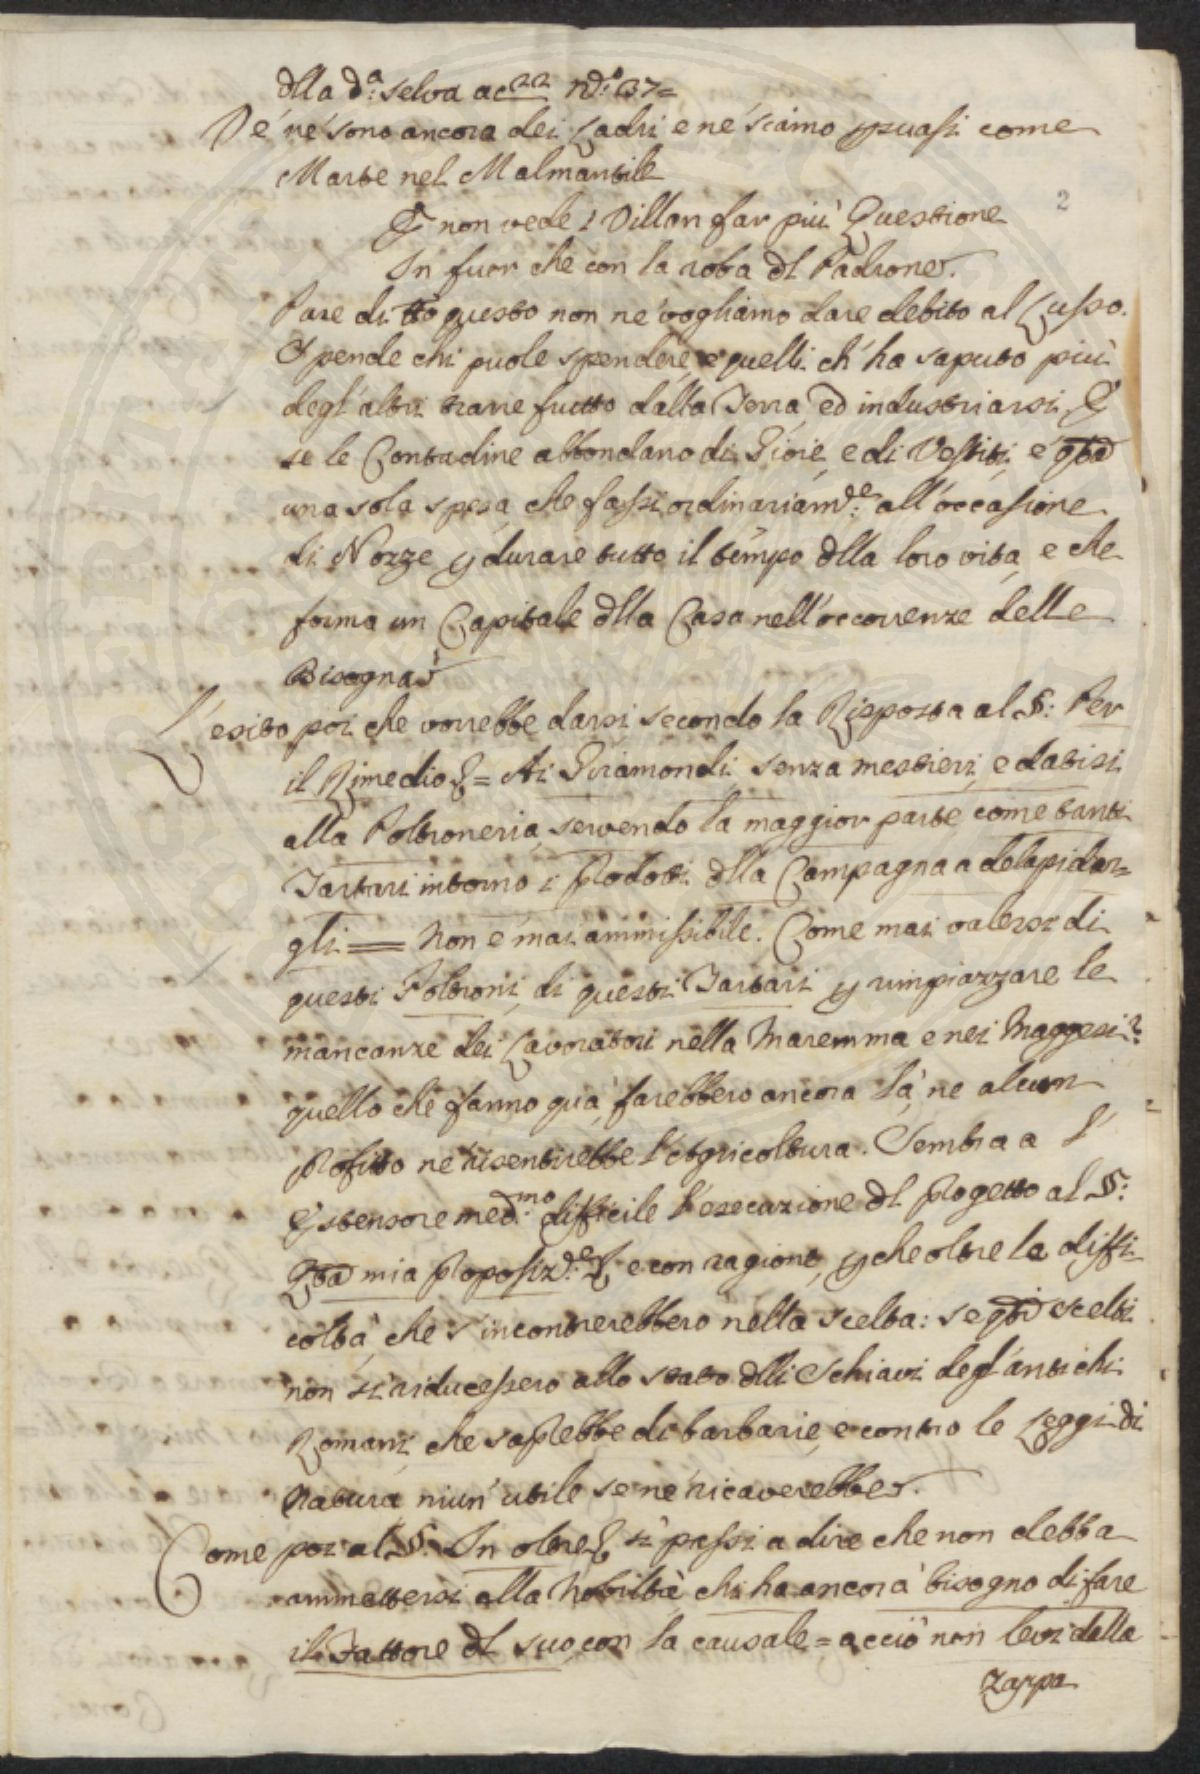 dlla d.a selva ac 22 nd.o 37=
Ve' ne' sono ancora dei Ladri e ne' sciamo psuasi come
Marte nel Malmantile
E non vede i Villan far più Questione
In fuor che con la roba dl Padrone.
Pare di tto questo non ne vogliamo dare debito al Lusso.
Spende chi puole spendere, e quelli ch' ha saputo più
degl'altri trarre frutto dalla Terra ed industriarsi, E
se le Contadine abbondano di Gioie, e di Vestiti, è qta
una sola spesa, che fassi ordinariam.e all'occasione
di Nozze p durare tutto il tempo dlla loro vita, e che
forma un Capitale dlla Casa nell'occorrenze delle
Bisogna
L'esito poi che vorrebbe darsi secondo la Risposta al §: Per
il Rimedio & = Ai Giramondi, senza mestieri, e datisi
alla Poltroneria, servendo la maggior parte, come tanti
Tartari intorno i Prodotti dlla Campagna a delapidar=
gli = Non è mai ammissibile. Come mai valersi di
questi Poltroni, di questi Tartari p rimpiazzare le
mancanze dei Lavoratori nella Maremma e nei Maggesi?
quello che fanno quà, farebbero ancora là, ne alcun
Profitto ne risentirebbe l'Agricoltura. Sembra a l'
Estensore med.mo difficile l'esecuzione dl Progetto al §:
Qta mia Proposiz.e & e con ragione, p che oltre la diffi-
coltà, che s'incontrerebbero nella scelta: se qti scelti
non si riducessero allo stato dlli Schiavi degl'antichi
Romani, che saprebbe di barbarie, e contro le Leggi di
Natura niun' utile se ne ricaverebbe.
Come poi al §: In oltre & si passi a dire che non debba
ammettersi alla Nobiltà chi ha ancora bisogno di fare
il Fattore dl suo, con la causale = acciò non levi dalla
Zappa